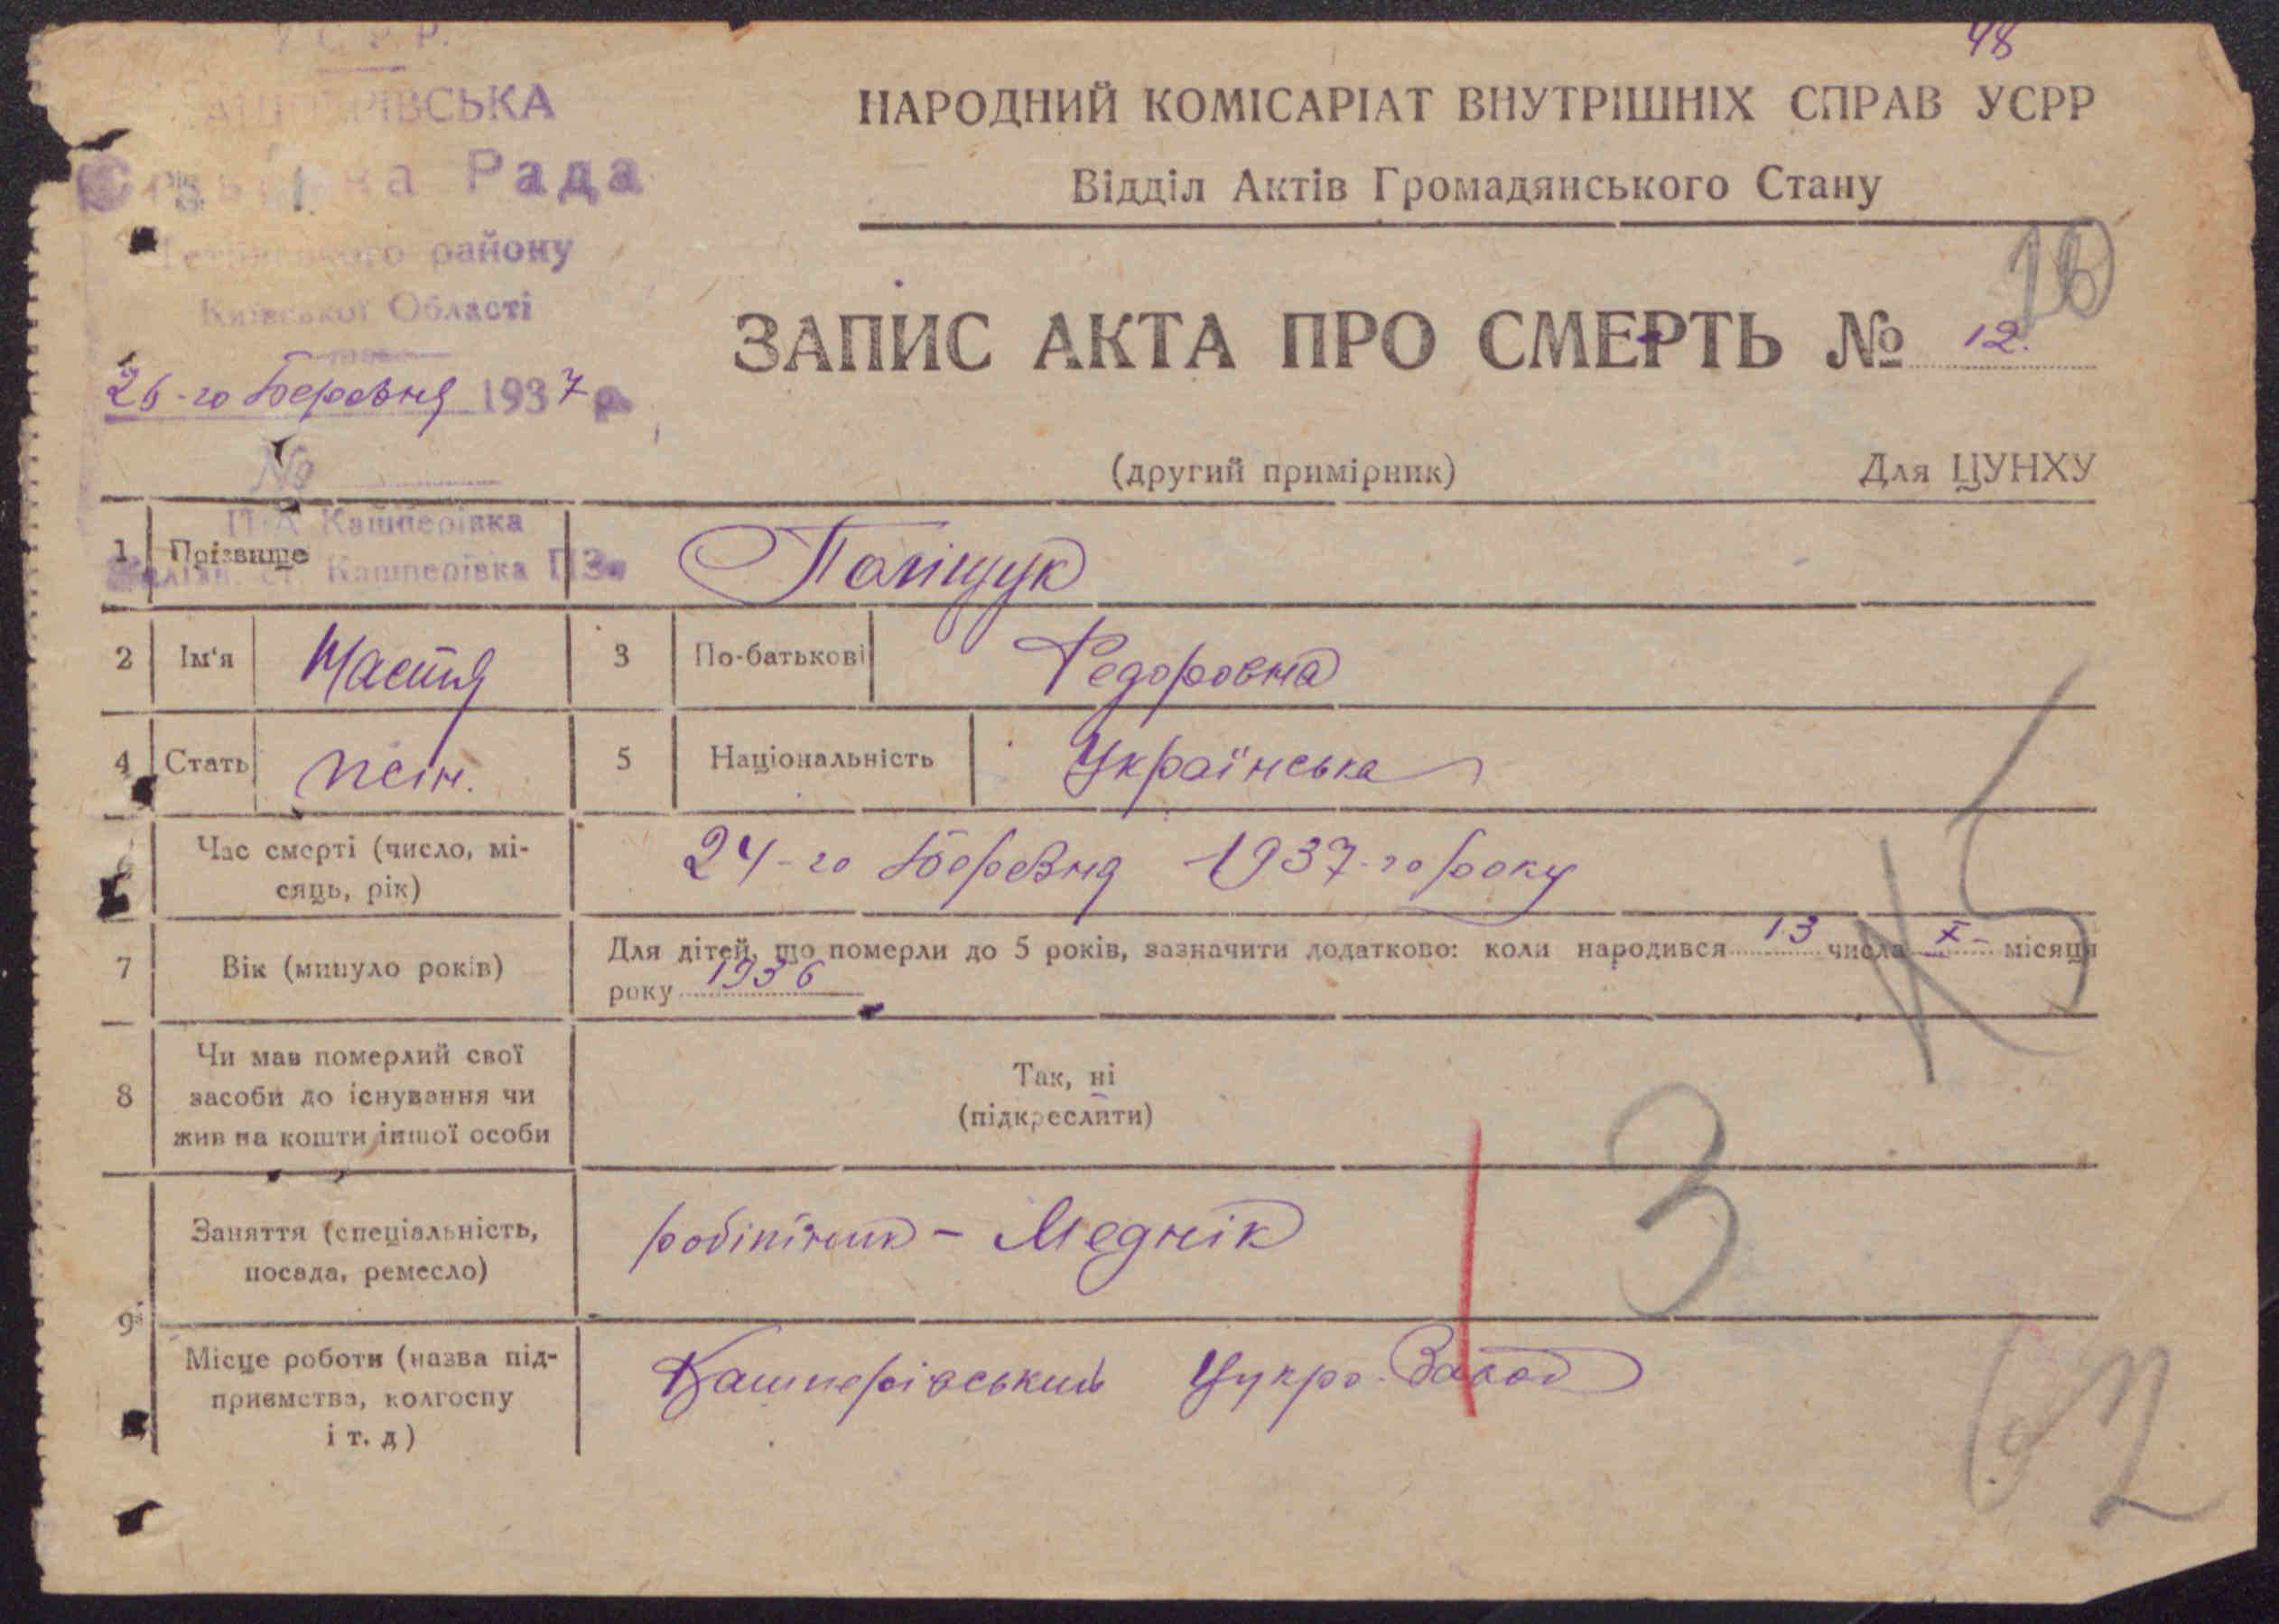 48
У.С.Р.Р.
НАРОДНИЙ КОМІСАРІАТ ВНУТРІШНІХ СПРАВ УСРР
Відділ Актів Громадянського Стану
Рада
району
Київської Області
26-го Березня 1937 р.
№
П/А Кашперівка
ст. Кашперівка ПЗ
ЗАПИС АКТА ПРО СМЕРТЬ № 12.
(другий примірник) Для ЦУНХУ
1 Прізвище Поліщук
2 Ім'я Настя 3 По-батькові Федоровна
4 Стать жін. 5 Національність Українська
Час смерті (число, мі-
сяць, рік) 24-го Березня 1937-го року
7 Вік (минуло років) Для дітей, що померли до 5 років, зазначити додатково: коли народився 13 числа X- місяця
року 1936
8 Чи мав померлий свої
засоби до існування чи
жив на кошти іншої особи
Так, ні
(підкреслити)
9 Заняття (спеціальність,
посада, ремесло) робітник - Меднік
Місце роботи (назва під-
приємства, колгоспу
і т. д) Кашперівський Цукро-Завод
3